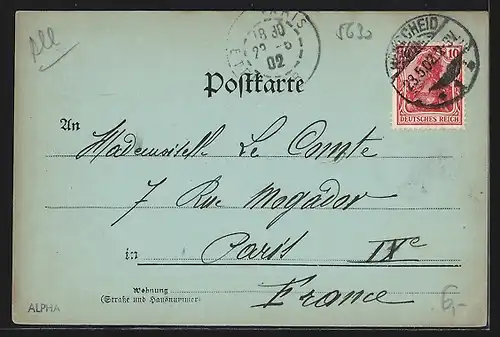 all
5630
PARIS
18 30
23 - 5
02
SCHEID
23.5.02
10 10
DEUTSCHES REICH
Postkarte
An
Mademoiselle Le Comte
7 Rue Mogador
in Paris IXe
Wohnung
(Straße und Hausnummer)
France
ALPHA
6,-